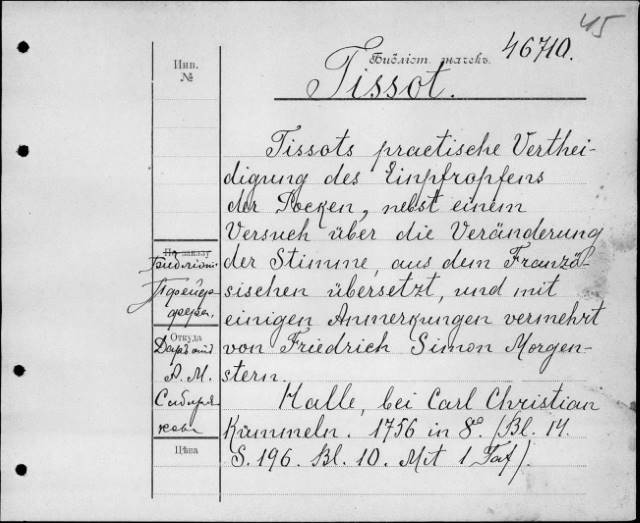 45
46710.
Инв.
№
Библіот. значекъ.
Tissot.
Tissots practische Verthei-
digung des Einpfropfens
der Pocken, nebst einem
Versuch über die Veränderung
der Stimme, aus dem Franzö-
sischen übersetzt, und mit
einigen Anmerkungen vermehrt
von Friedrich Simon Morgen-
stern.
Halle, bei Carl Christian
Kümmeln. 1756 in 8º. (Bl. 14.
S. 196. Bl. 10. Mit 1 Taf).
По заказу
Библіот.
Пфейф-
фера.
Откуда
Даръ
А. М.
Сибиря
кова
Цѣна